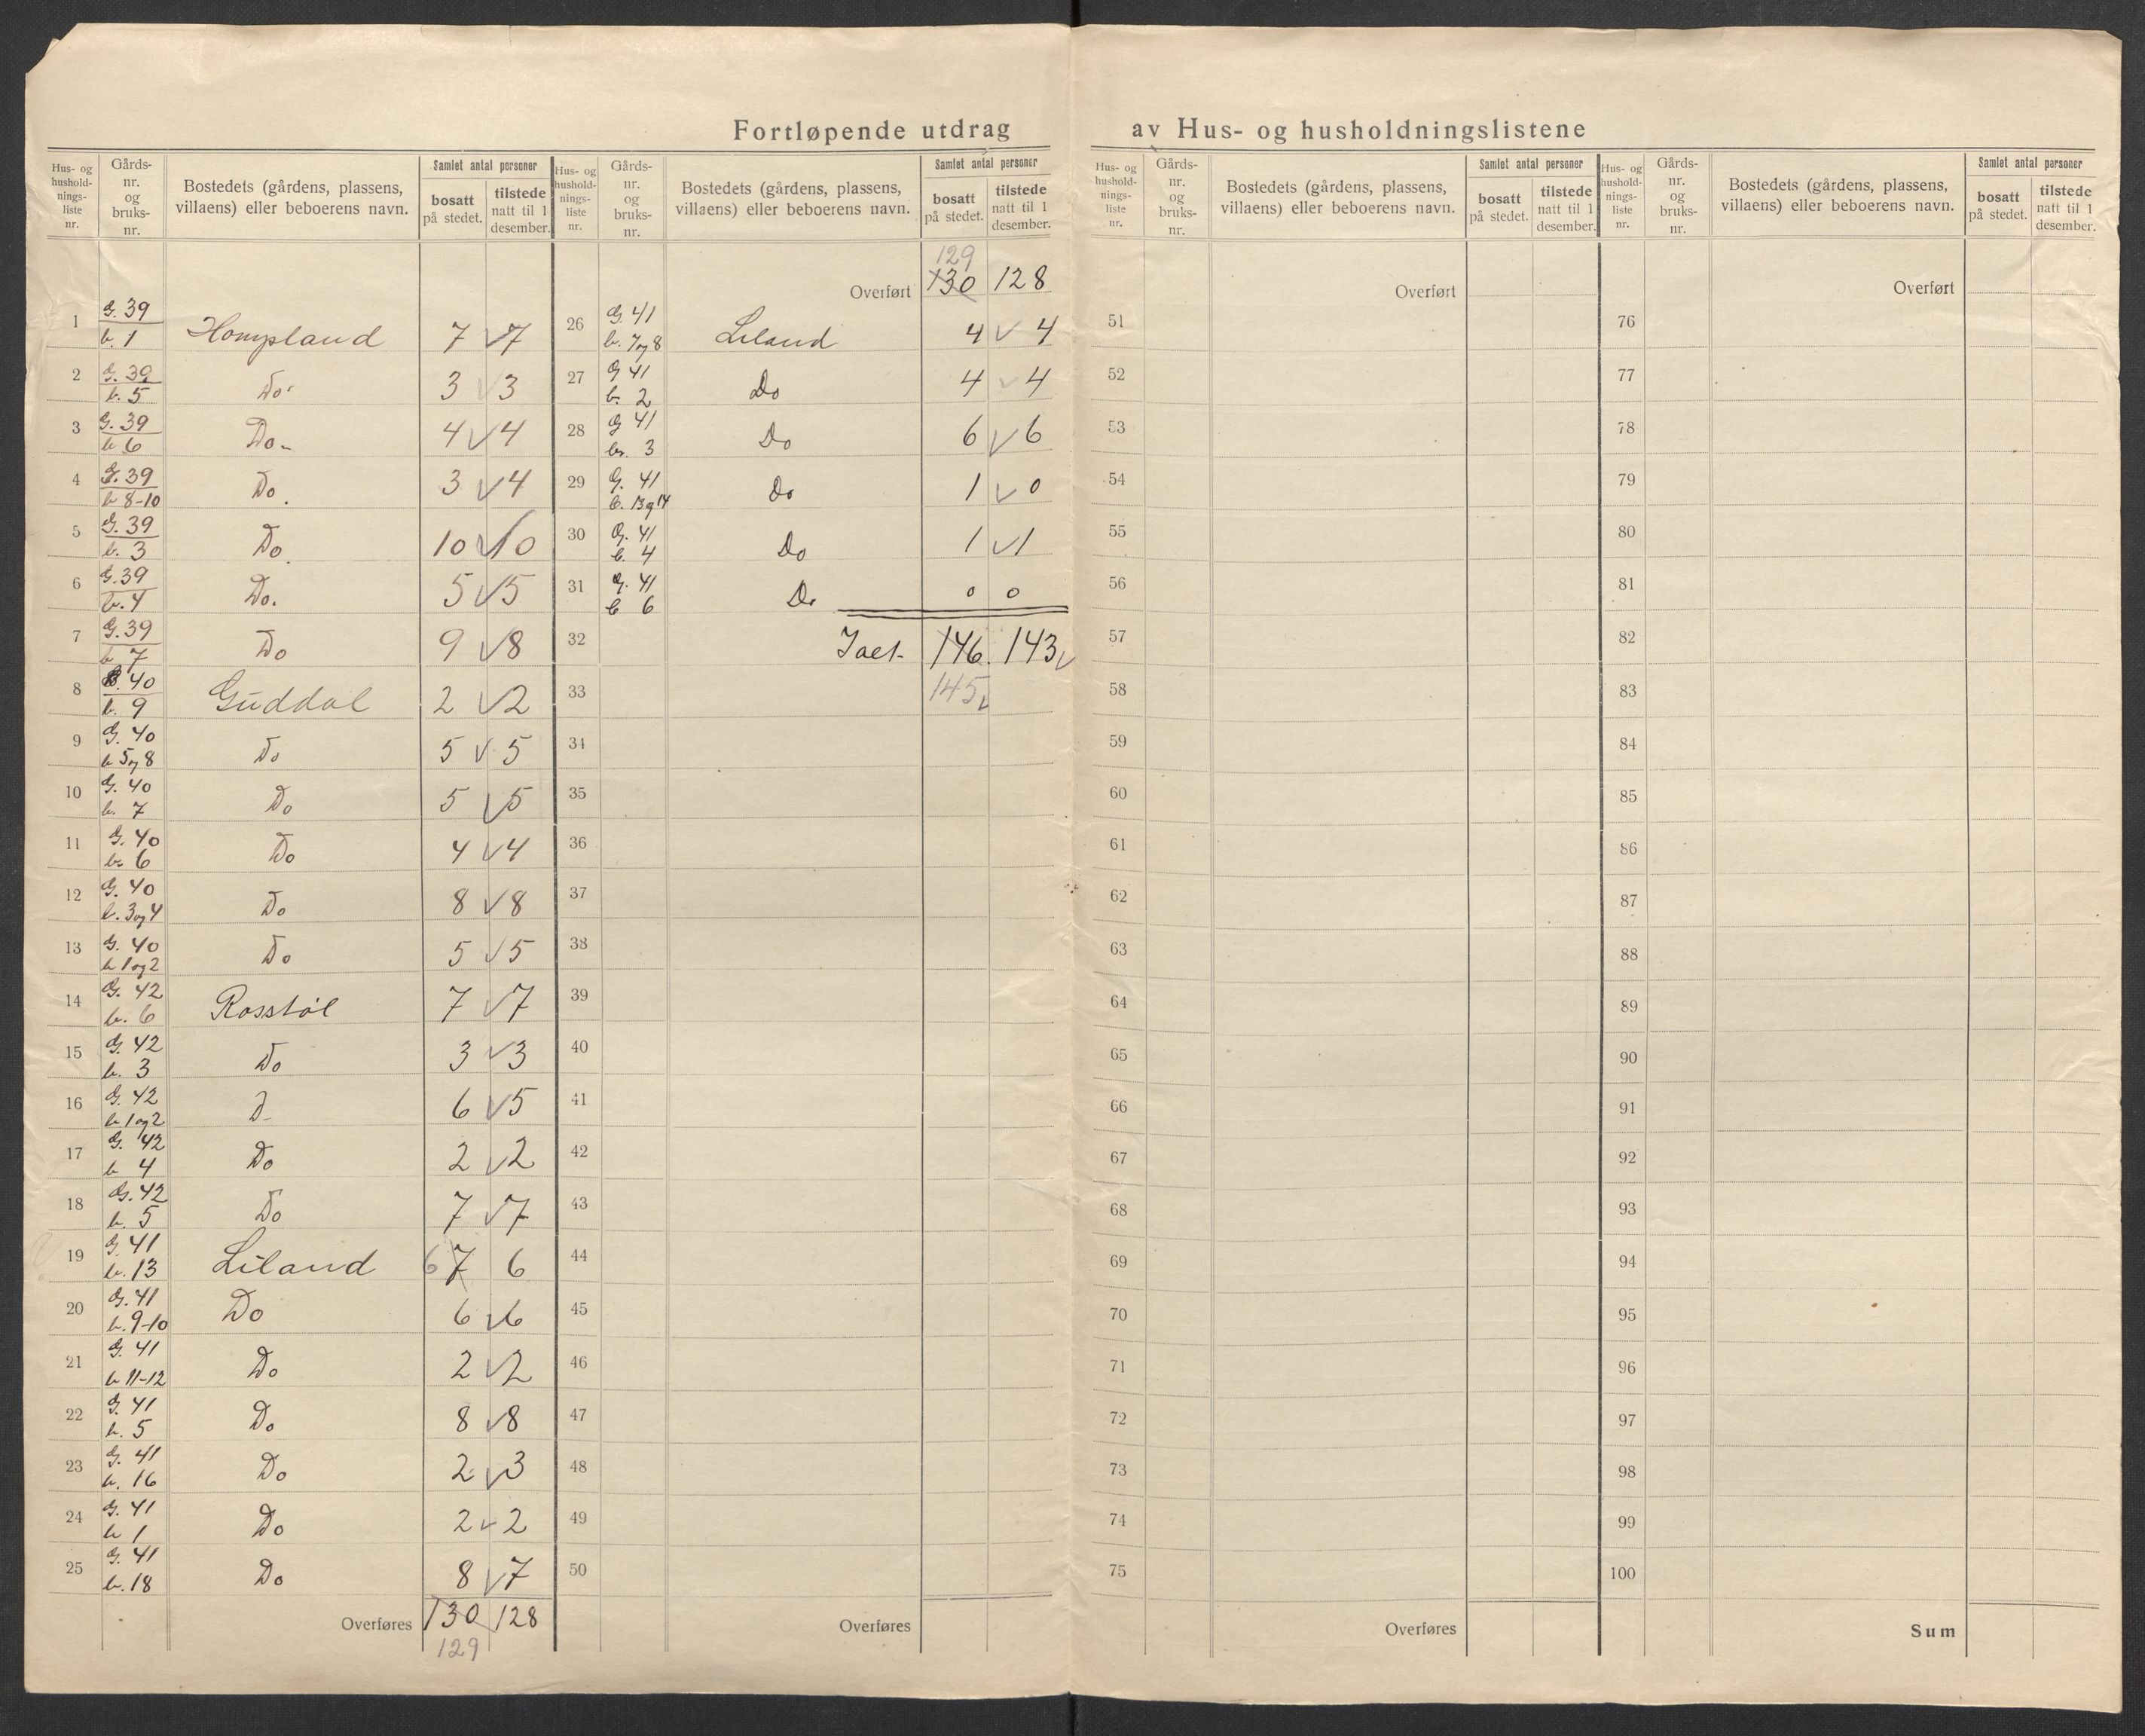 Fortløpende utdrag av Hus- og husholdningslistene
Hus- og hushold-nings-liste nr. Gårds-nr. og bruks-nr. Bostedets (gårdens, plassens, villaens) eller beboerens navn. Samlet antal personer bosatt på stedet. tilstede natt til 1 desember.
1 G. 39 b. 1 Hompland 7 7
2 G. 39 b. 5 Do. 3 3
3 G. 39 b 6 Do 4 4
4 G. 39 b 8-10 Do. 3 4
5 G. 39 b. 3 Do. 10 10
6 G. 39 b. 4 Do. 5 5
7 G. 39 b 7 Do 9 8
8 G. 40 b. 9 Guddal 2 2
9 G. 40 b 5og 8 Do 5 5
10 G. 40 b. 7 Do 5 5
11 G. 40 b. 6 Do 4 4
12 G. 40 b. 3og4 Do 8 8
13 G. 40 b 1og2 Do 5 5
14 G. 42 b. 6 Rosstøl 7 7
15 G. 42 b. 3 Do 3 3
16 G. 42 b 1og2 D 6 5
17 G. 42 b 4 Do 2 2
18 G. 42 b. 5 Do 7 7
19 G. 41 b. 13 Liland 6 7 6
20 G. 41 b. 9-10 Do 6 6
21 G. 41 b 11-12 Do 2 2
22 G. 41 b. 5 Do 8 8
23 G. 41 b. 16 Do 2 3
24 G. 41 b 1 Do 2 2
25 G. 41 b. 18 Do 8 7
Overføres 130 128
129
Hus- og hushold-nings-liste nr. Gårds-nr. og bruks-nr. Bostedets (gårdens, plassens, villaens) eller beboerens navn. Samlet antal personer bosatt på stedet. tilstede natt til 1 desember.
129
Overført 130 128
26 G. 41 b. 7og 8 Liland 4 4
27 G 41 b. 2 Do 4 4
28 G 41 br. 3 Do 6 6
29 G. 41 Do 1 0
30 G. 41 b. 4 Do 1 1
31 G. 41 b 6 Do 0 0
32 146. 143
33 145
34
35
36
37
38
39
40
41
42
43
44
45
46
47
48
49
50
Overføres
Hus- og hushold-nings-liste nr. Gårds-nr. og bruks-nr. Bostedets (gårdens, plassens, villaens) eller beboerens navn. Samlet antal personer bosatt på stedet. tilstede natt til 1 desember.
Overført
51
52
53
54
55
56
57
58
59
60
61
62
63
64
65
66
67
68
69
70
71
72
73
74
75
Overføres
Hus- og hushold-nings-liste nr. Gårds-nr. og bruks-nr. Bostedets (gårdens, plassens, villaens) eller beboerens navn. Samlet antal personer bosatt på stedet. tilstede natt til 1 desember.
Overført
76
77
78
79
80
81
82
83
84
85
86
87
88
89
90
91
92
93
94
95
96
97
98
99
100
Sum